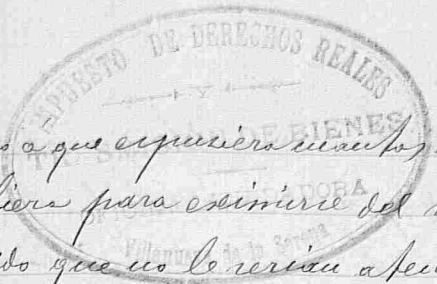 IMPUESTO DE DERECHOS REALES
Y
DE BIENES
Villanueva de la Serena
a que expusiera cuantos
para eximirse del
do que no le serían aten